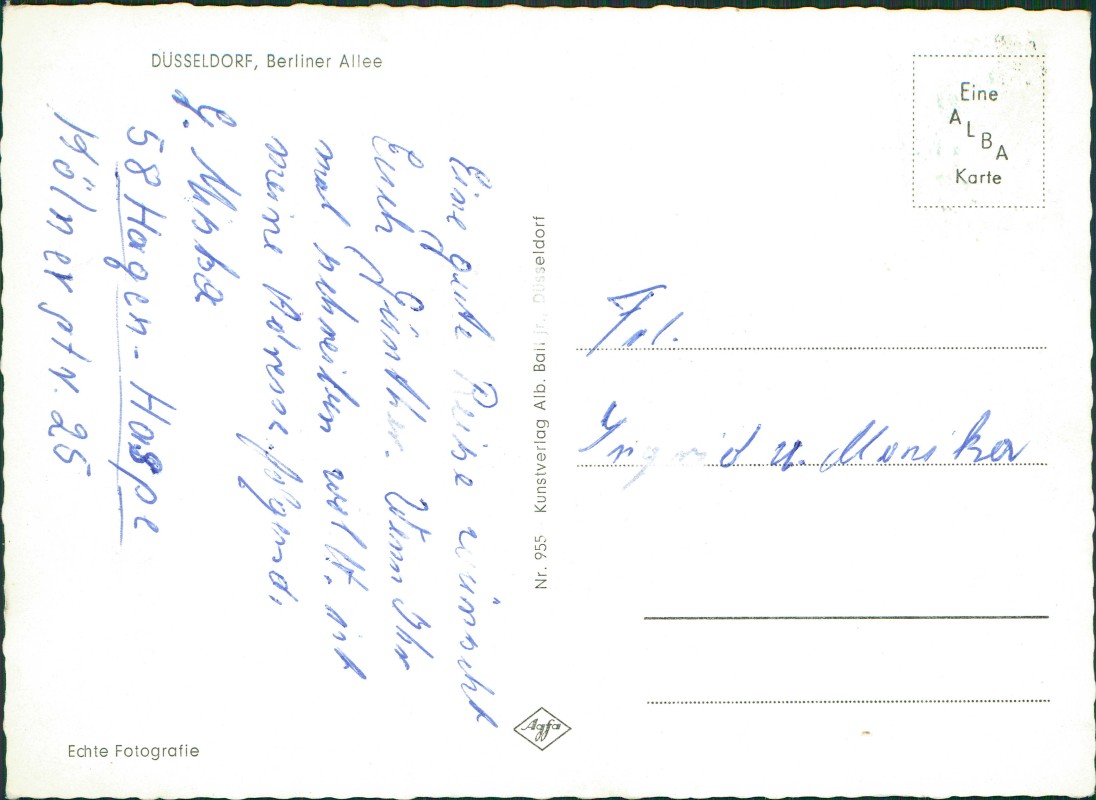 DÜSSELDORF, Berliner Allee
Eine gute Reise wünscht
Euch Günther. Wenn Ihr
mal schreiben wollt. ist
meine Adresse folgend.
G. Mi
58 Hagen-Haspe
Kölner str. 25
Nr. 955 Kunstverlag Alb. Ball jr., Düsseldorf
Agfa
Echte Fotografie
Eine
ALBA
Karte
Frl.
Ingrid u. Monika